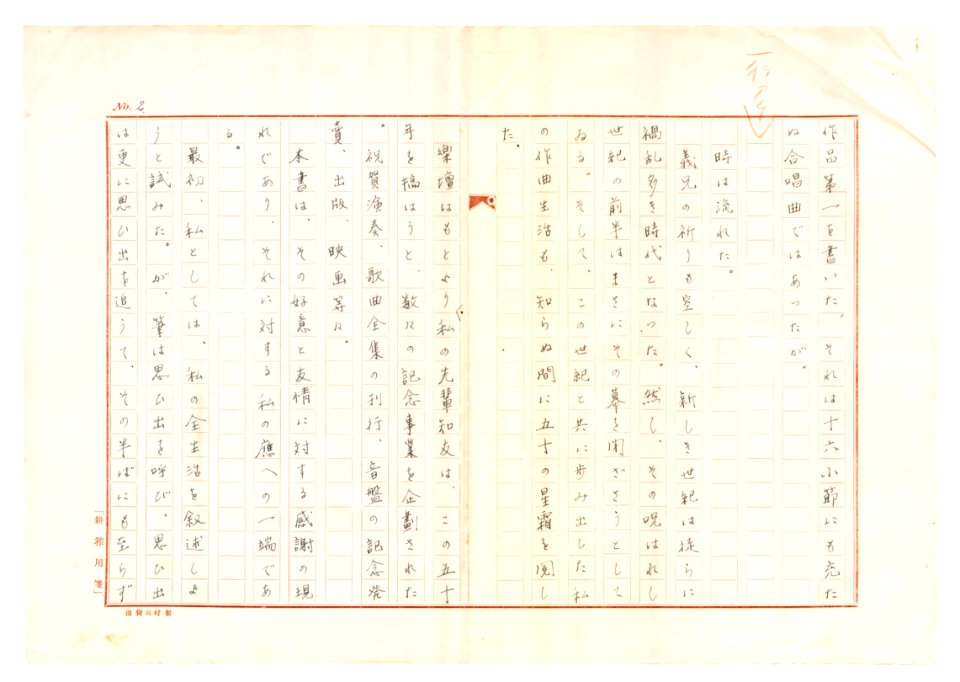 No. 2
作品第一を書いた。それは十六小節にも充た
ぬ合唱曲ではあったが。
時は流れた。
義兄の祈りも空しく、新しき世紀は徒らに
禍乱多き時代となった。然し、その呪はれし
世紀の前半はまさにその幕を閉ざさうとして
ゐる。そして、この世紀と共に歩み出した私
の作曲生活も、知らぬ間に五十の星霜を閲し
た。
楽壇はもとより私の先輩知友は、この五十
年を犒はうと、数々の記念事業を企劃された
。祝賀演奏、歌曲全集の刊行、音盤の記念発
賣、出版、映画等々。
本書は、その好意と友情に対する感謝の現
れであり、それに対する私の應への一端であ
る。
最初、私としては、私の全生活を叙述しよ
うと試みた。が、筆は思ひ出を呼び、思ひ出
は更に思ひ出を追うて、その半ばにも至らず
「耕筰用箋」